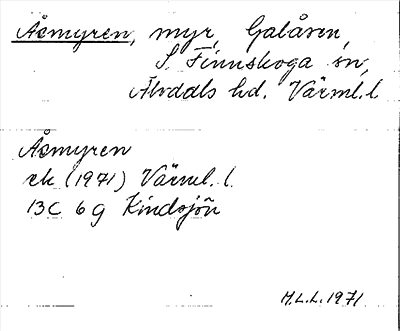 Åsmyren, myr, Galåsen,
S. Finnskoga sn,
Älvdals hd. Värml. l.
Åsmyren
ek (1971) Värml. l.
13C 6g Kindsjön
M.L.L. 1971